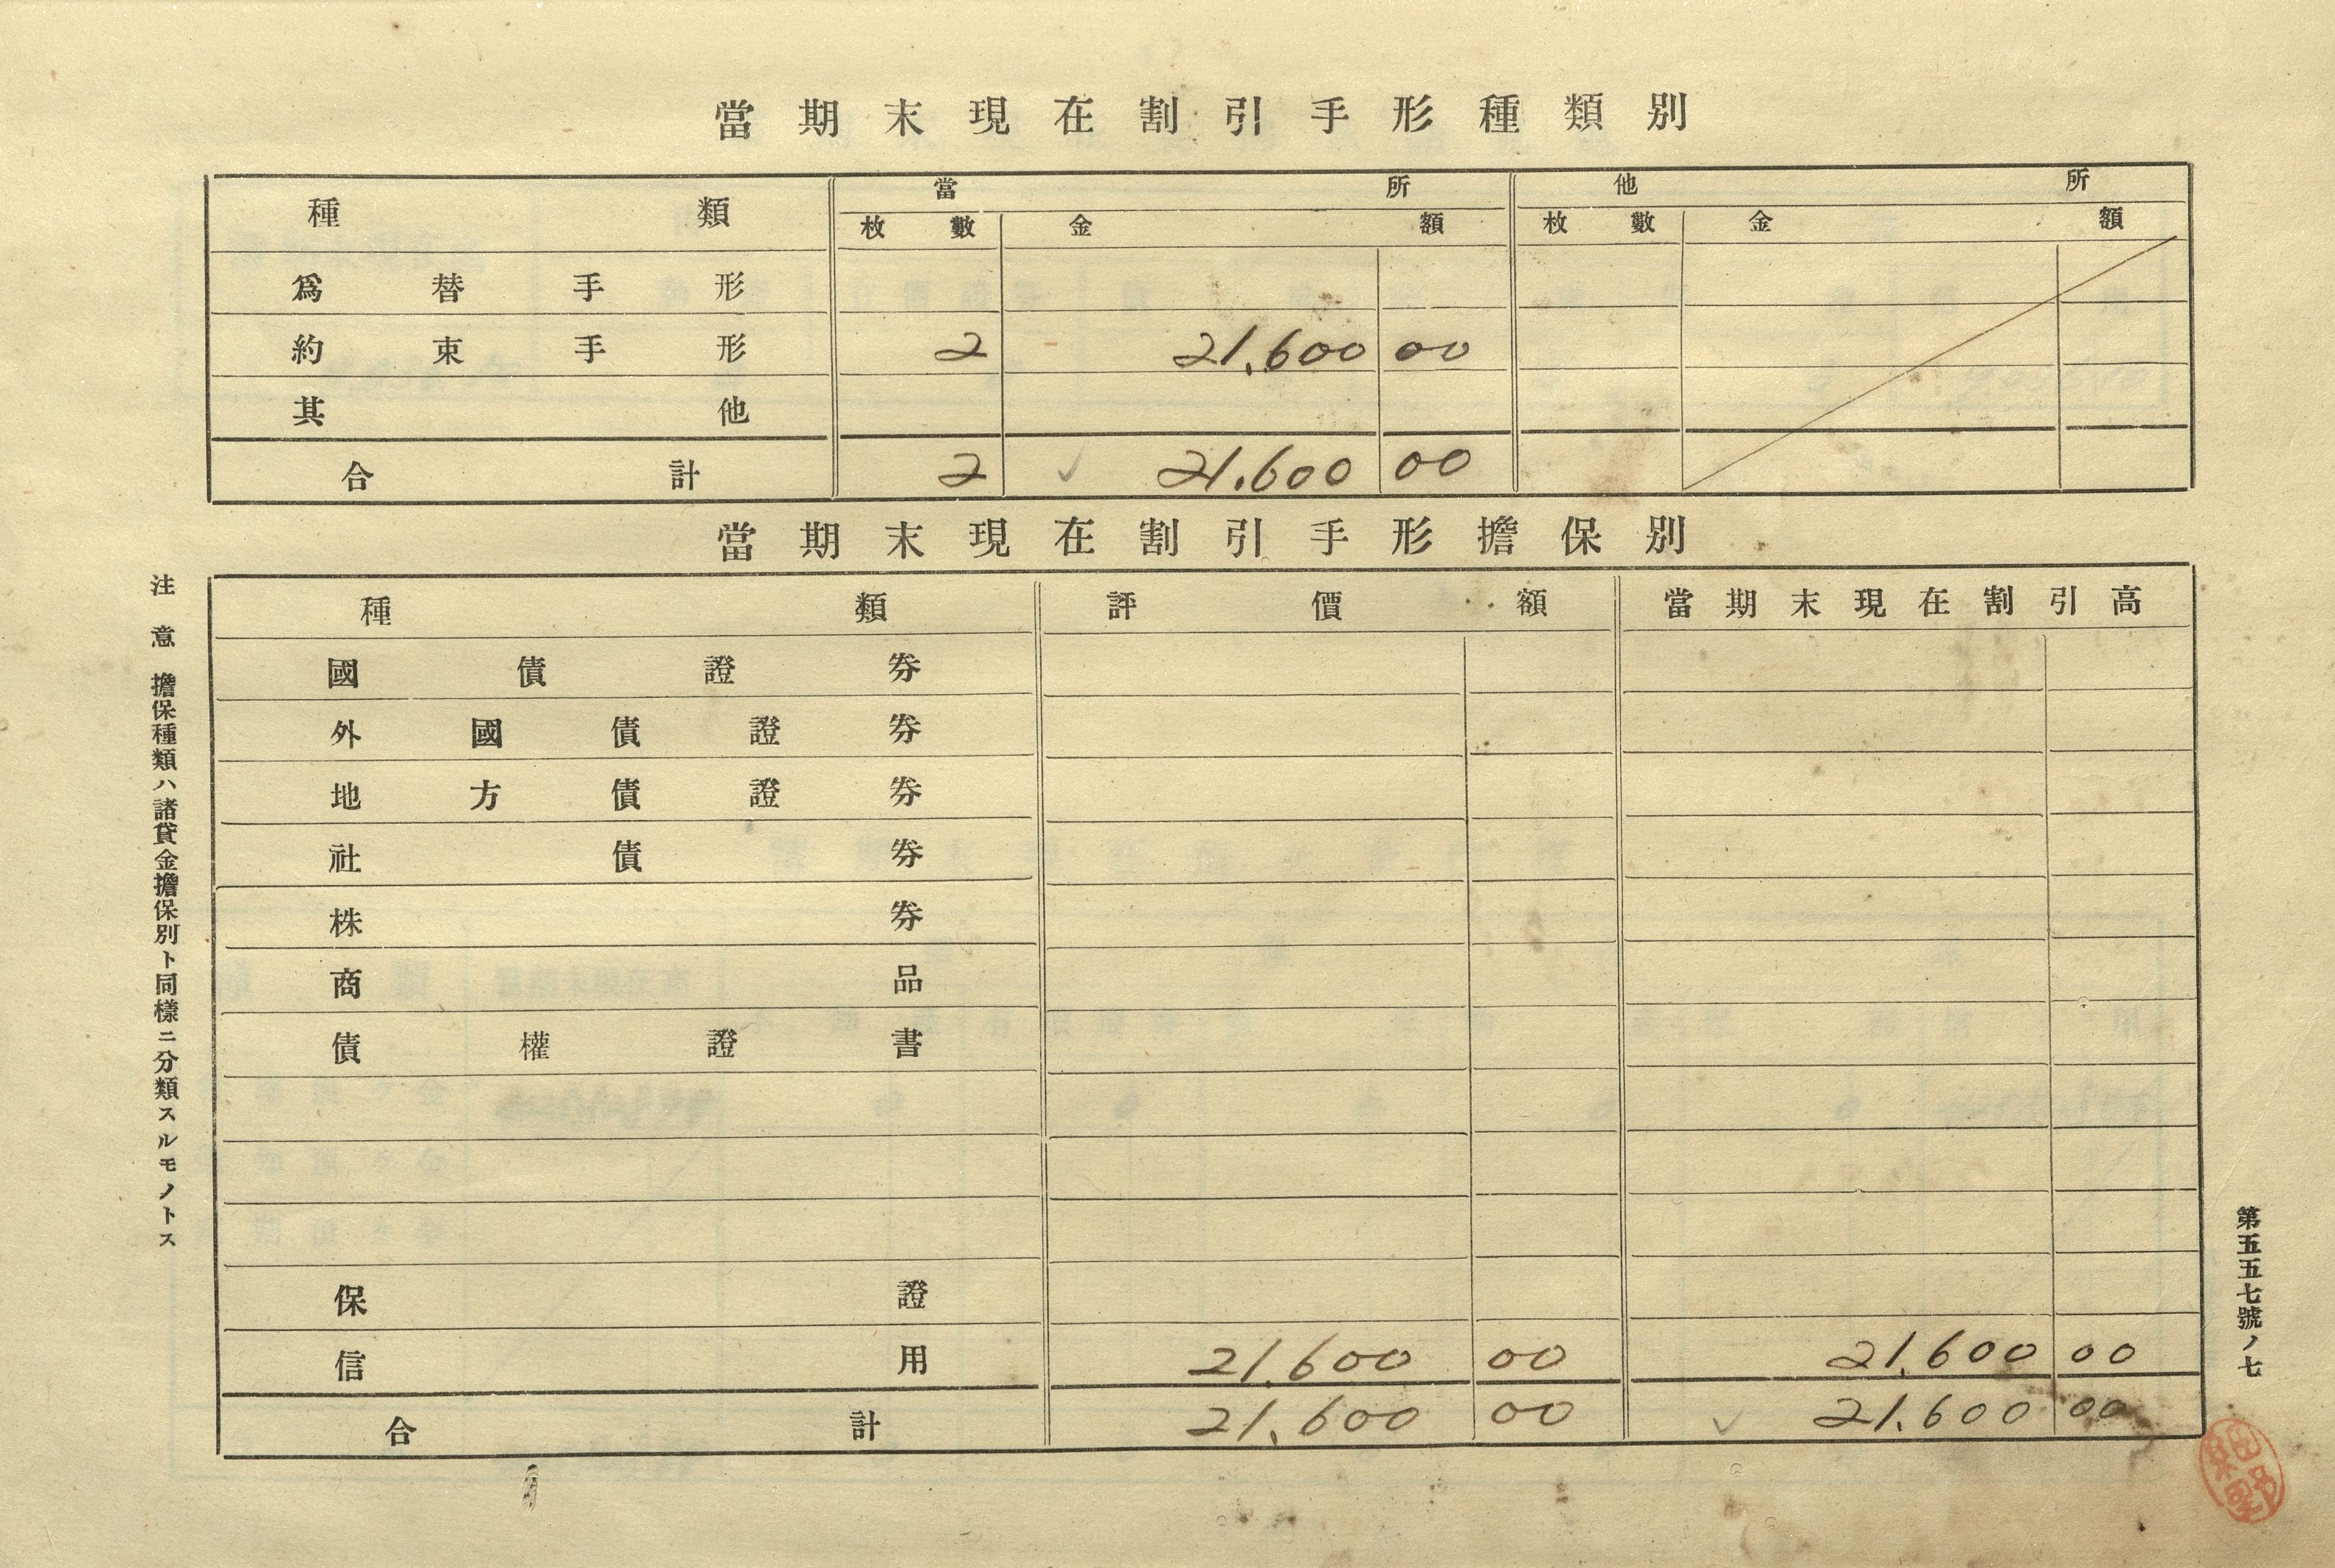 當期末現在割引手形種類別
種類 當所 他所
枚數 金額 枚數 金額
爲替手形
約束手形 2 21,600 00
其他
合計 2 ✓ 21,600 00
當期末現在割引手形擔保別
種類 評價額 當期末現在割引高
國債證券
外國債證券
地方債證券
社債券
株券
商品
債權證書
保證
信用 21,600 00 21,600 00
合計 21,600 00 ✓ 21,600 00
注意 擔保種類ハ諸貸金擔保別ト同樣ニ分類スルモノトス
第五五七號ノ七